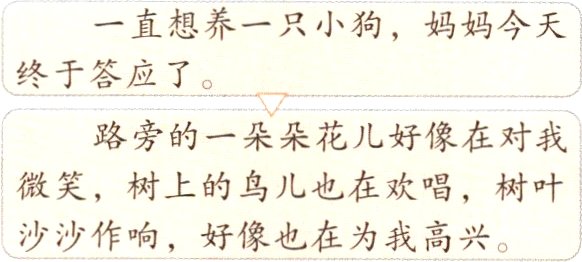 一直想养一只小狗，妈妈今天
终于答应了。
路旁的一朵朵花儿好像在对我
微笑，树上的鸟儿也在欢唱，树叶
沙沙作响，好像也在为我高兴。